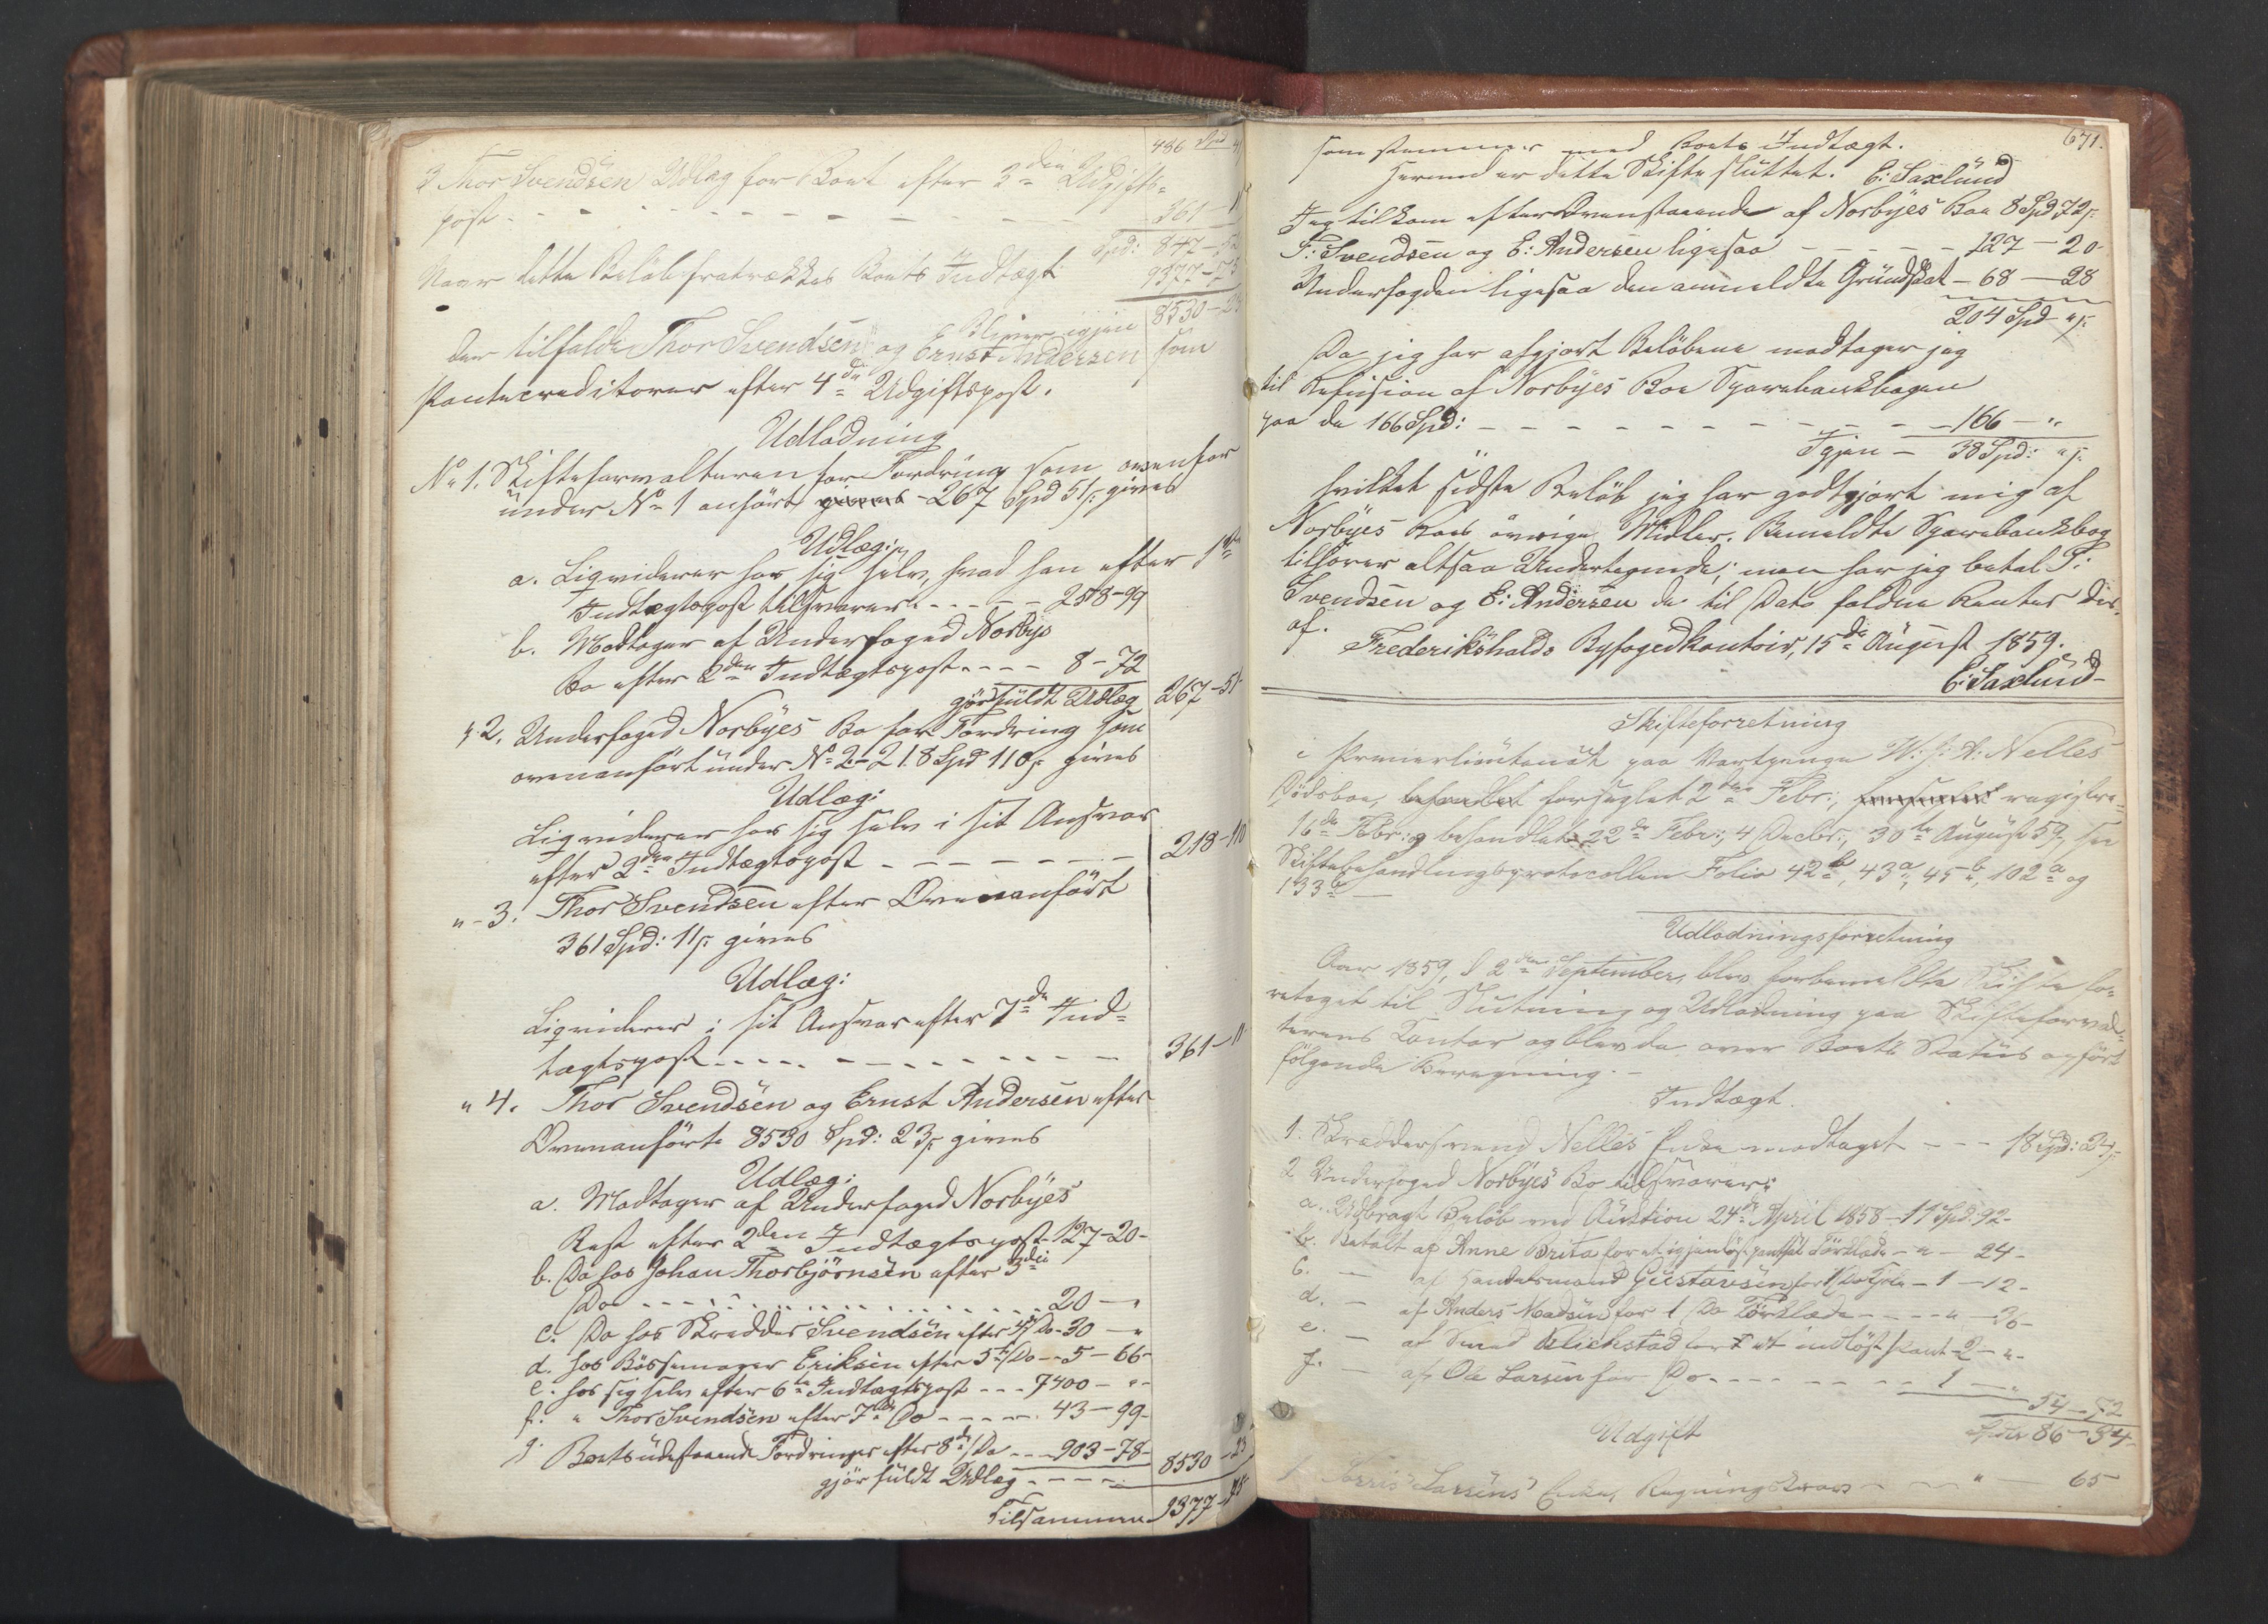 486 Spd
3 Thor Svendsen Udlæg for Boet efter 3die Udgifts-
post - - - - - - - - - - 361 - 11
Spd: 847 - 52
Naar dette Beløb fratrækkes Boets Indtægt 9377 - 75
Bliver igjen 8530 - 23
der tilfalde Thor Svendsen og Ernst Andersen som
Pantecreditorer efter 4de Udgiftspost.
Udlodning
No 1. Skifteforvalteren for Fordring som ovenfor
under No 1 anført 267 Spd 51 s: gives
Udlæg:
a. Liqviderer hos sig selv, hvad han efter 1ste
Indtægtspost tilsvarer - - - - 258-99
b. Modtager af Underfoged Norbys
Bo efter 2den Indtægtspost - - - - 8-72
gjør fuldt Udlæg 267-51
" 2. Underfoged Norbyes Bo for Fordring som
ovenanført under No 2 - 218 Spd 110 s: gives
Udlæg:
Liqviderer hos sig selv i sit Ansvar
efter 2den Indtægtspost - - - - - - - 218-110
" - 3. Thor Svendsen efter Ovenanført
361 Spd: 11 s: gives
Udlæg:
Liqviderer i sit Ansvar efter 7de Ind-
tægtspost - - - - - - - - - - - 361-11
" 4. Thor Svendsen og Ernst Andersen efter
Ovenanførte 8530 Spd: 23 s: gives
Udlæg:
a. Modtager af Underfoged Norbyes
Rest efter 2den Indtægtspost - 127-20-
b. Do hos Johan Thorbjørnsen efter 3die
Do - - - - - - - - - - 20 - "
c. Do hos Skrædder Svendsen efter 4de Do - 30 - "
d. hos Bøssemager Eriksen efter 5te Do - 5 - 66-
e. hos sig selv efter 6te Indtægtspost - - - 7400 - "-
f. " Thor Svendsen efter 7de Do - - - - 43-99-
g. Boets udestaaende Fordringer efter 8de Do - - - 903-78-
gjør fuldt Udlæg - - - - 8530-23
Tilsammen 9377-75
671.
som stemmer med Boets Indtægt.
Hermed er dette Skifte sluttet. C: Saxlund
Jeg tilkom efter Ovenstaaende af Norbyes Boe 8 Spd 72 s:
T: Svendsen og E: Andersen ligesaa - - - - - 127 - 20-
Underfogden ligesaa den anmeldte Grundskat - 68 - 28
204 Spd " s:
Da jeg har afgjort Beløbene modtager jeg
til Refusion af Norbyes Boe Sparebankbogen
paa de 166 Spd: - - - - - - - - - 166 - "
Igjen - 38 Spd: " s:
hvilket sidste Beløb jeg har godtgjort mig af
Norbyes Boes øvrige Midler. Bemeldte Sparebankbog
tilhører altsaa Undertegnede; men har jeg betalt T:
Svendsen og E: Andersen de til Dato faldne Renter der-
af.
Frederikshalds Byfogedkontoir, 15de August 1859.
C: Saxlund
Skifteforretning
i Premierlieutenant paa Vartpenge W: J: A: Nelles
Dødsboe, behandlet forseglet 2den Febr:, registre-
16de Febr: behandlet 22de Febr:, 4 Decbr:, 30te August 59, see
Skiftebehandlingsprotocollen Folio 42b, 43a, 45b, 102a og
133b
Udlodningsforretning
Aar 1859, d 2den September, blev forbemeldte Skifte fo-
retaget til Slutning og Udlodning paa Skifteforval-
terens Contor og blev da over Boets Status opført
følgende Beregning. -
Indtægt.
1. Skræddersvend Nelles Enke modtaget - - - 18 Spd: 24 s:
2 Underfoged Norbyes Bo tilsvarer:
a. Udbragt Beløb ved Auction 24de April 1858 - 11 Spd: 92-
b. Betalt af Anne Brita for et igjenløst pantsat Tørklæde - " - 24-
c. - af Handelsmand Gustavsen for 1 Do - 1 - 12-
d. - af Anders Madsen for 1 Do Tørklæde - - - " - 36-
e. - af Smed for et indløst Pant - 2 - "-
f. - af Ole Larsen for Do - - - - - 1 - "
54 - 52
Udgift
86 - 34-
1. Larsens Enke, Regningskrav - - - " - 65